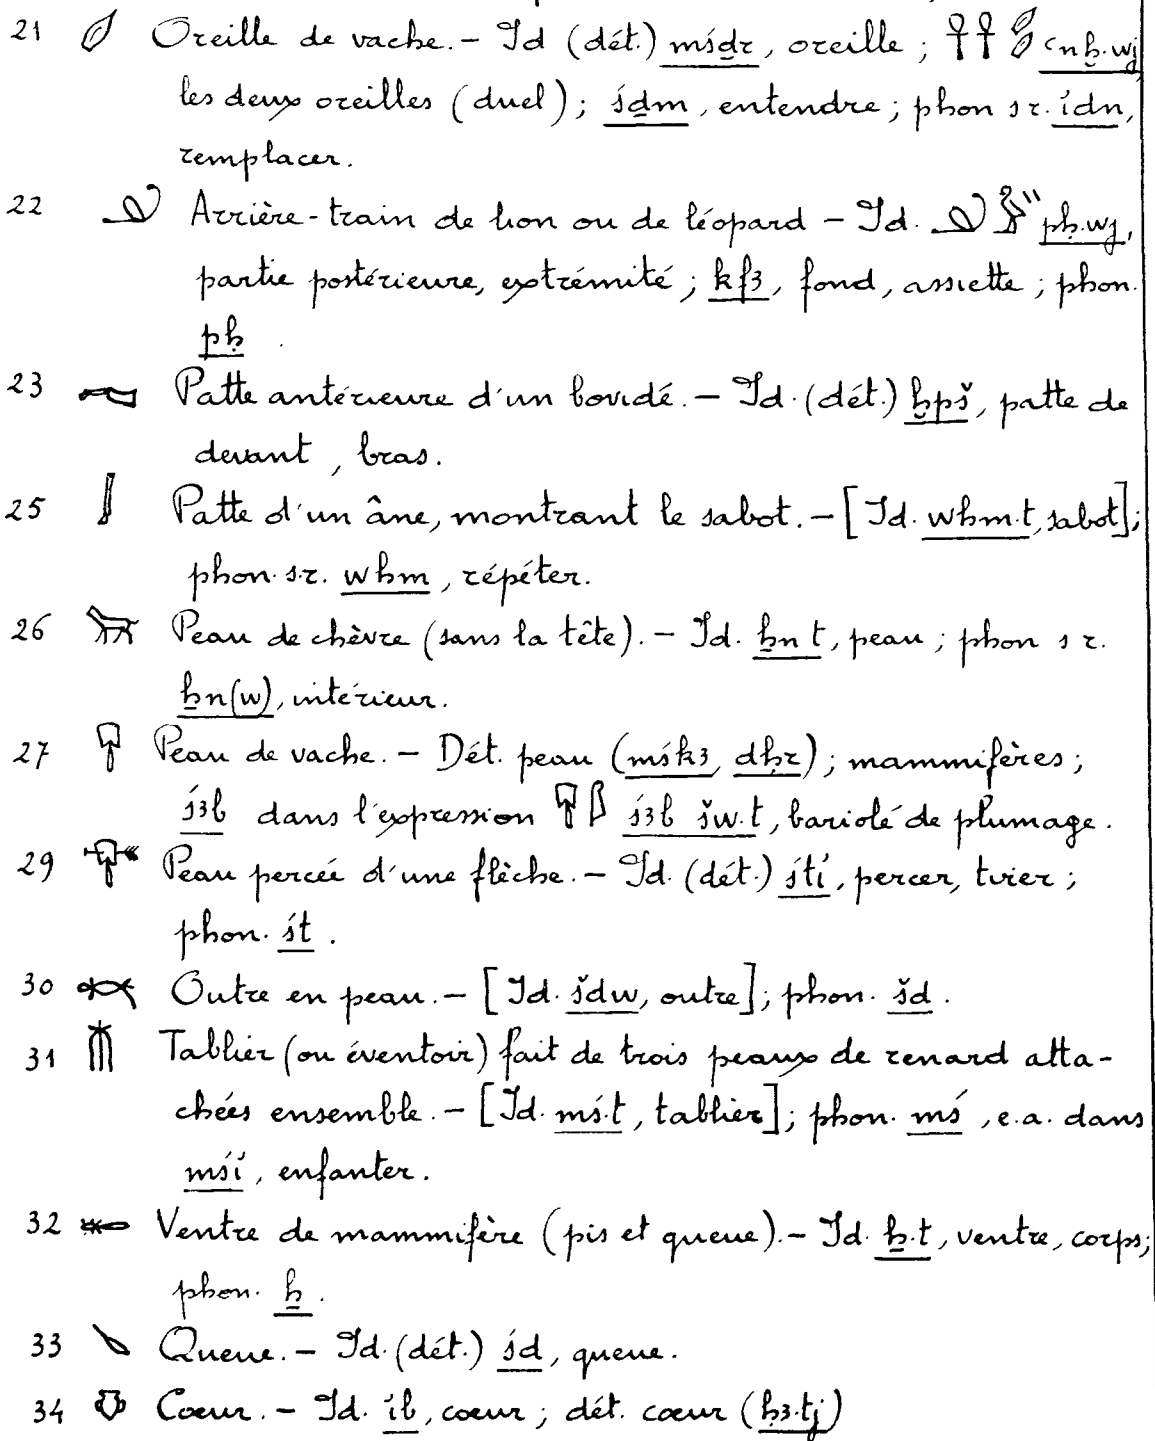 21 𓄔 Oreille de vache. – Id (dét.) msḏr, oreille ; 𓋹𓋹𓄔𓄔 ꜥnḫ.wj
les deux oreilles (duel) ; śḏm, entendre ; phon s r. idn,
remplacer.
22 𓄖 Arrière-train de lion ou de léopard – Id. 𓄖 pḥ.wj,
partie postérieure, extrémité ; kfꜣ, fond, assiette ; phon.
pḥ .
23 𓄗 Patte antérieure d'un bovidé. – Id. (dét.) ḫpš, patte de
devant, bras.
25 𓄙 Patte d'un âne, montrant le sabot. – [Id. wḥm.t, sabot] ;
phon. s.r. wḥm, répéter.
26 𓄚 Peau de chèvre (sans la tête). – Id. ẖn t, peau ; phon s r.
ẖn(w), intérieur.
27 𓄛 Peau de vache. – Dét. peau (mśkꜣ, dḥr) ; mammifères ;
śꜣb dans l'expression 𓄛𓆄 śꜣb šw.t, bariolé de plumage.
29 𓄝 Peau percée d'une flèche. – Id. (dét.) śti, percer, tirer ;
phon. śt .
30 𓄞 Outre en peau. – [Id. šdw, outre] ; phon. šd .
31 𓄟 Tablier (ou éventoir) fait de trois peaux de renard atta-
chées ensemble. – [Id. mś.t, tablier] ; phon. mś, e.a. dans
mśi, enfanter.
32 𓄡 Ventre de mammifère (pis et queue). – Id. ẖ.t, ventre, corps ;
phon. ẖ .
33 𓄢 Queue. – Id. (dét.) śd, queue.
34 𓄣 Coeur. – Id. ib, coeur ; dét. coeur (ḥꜣ.tj)